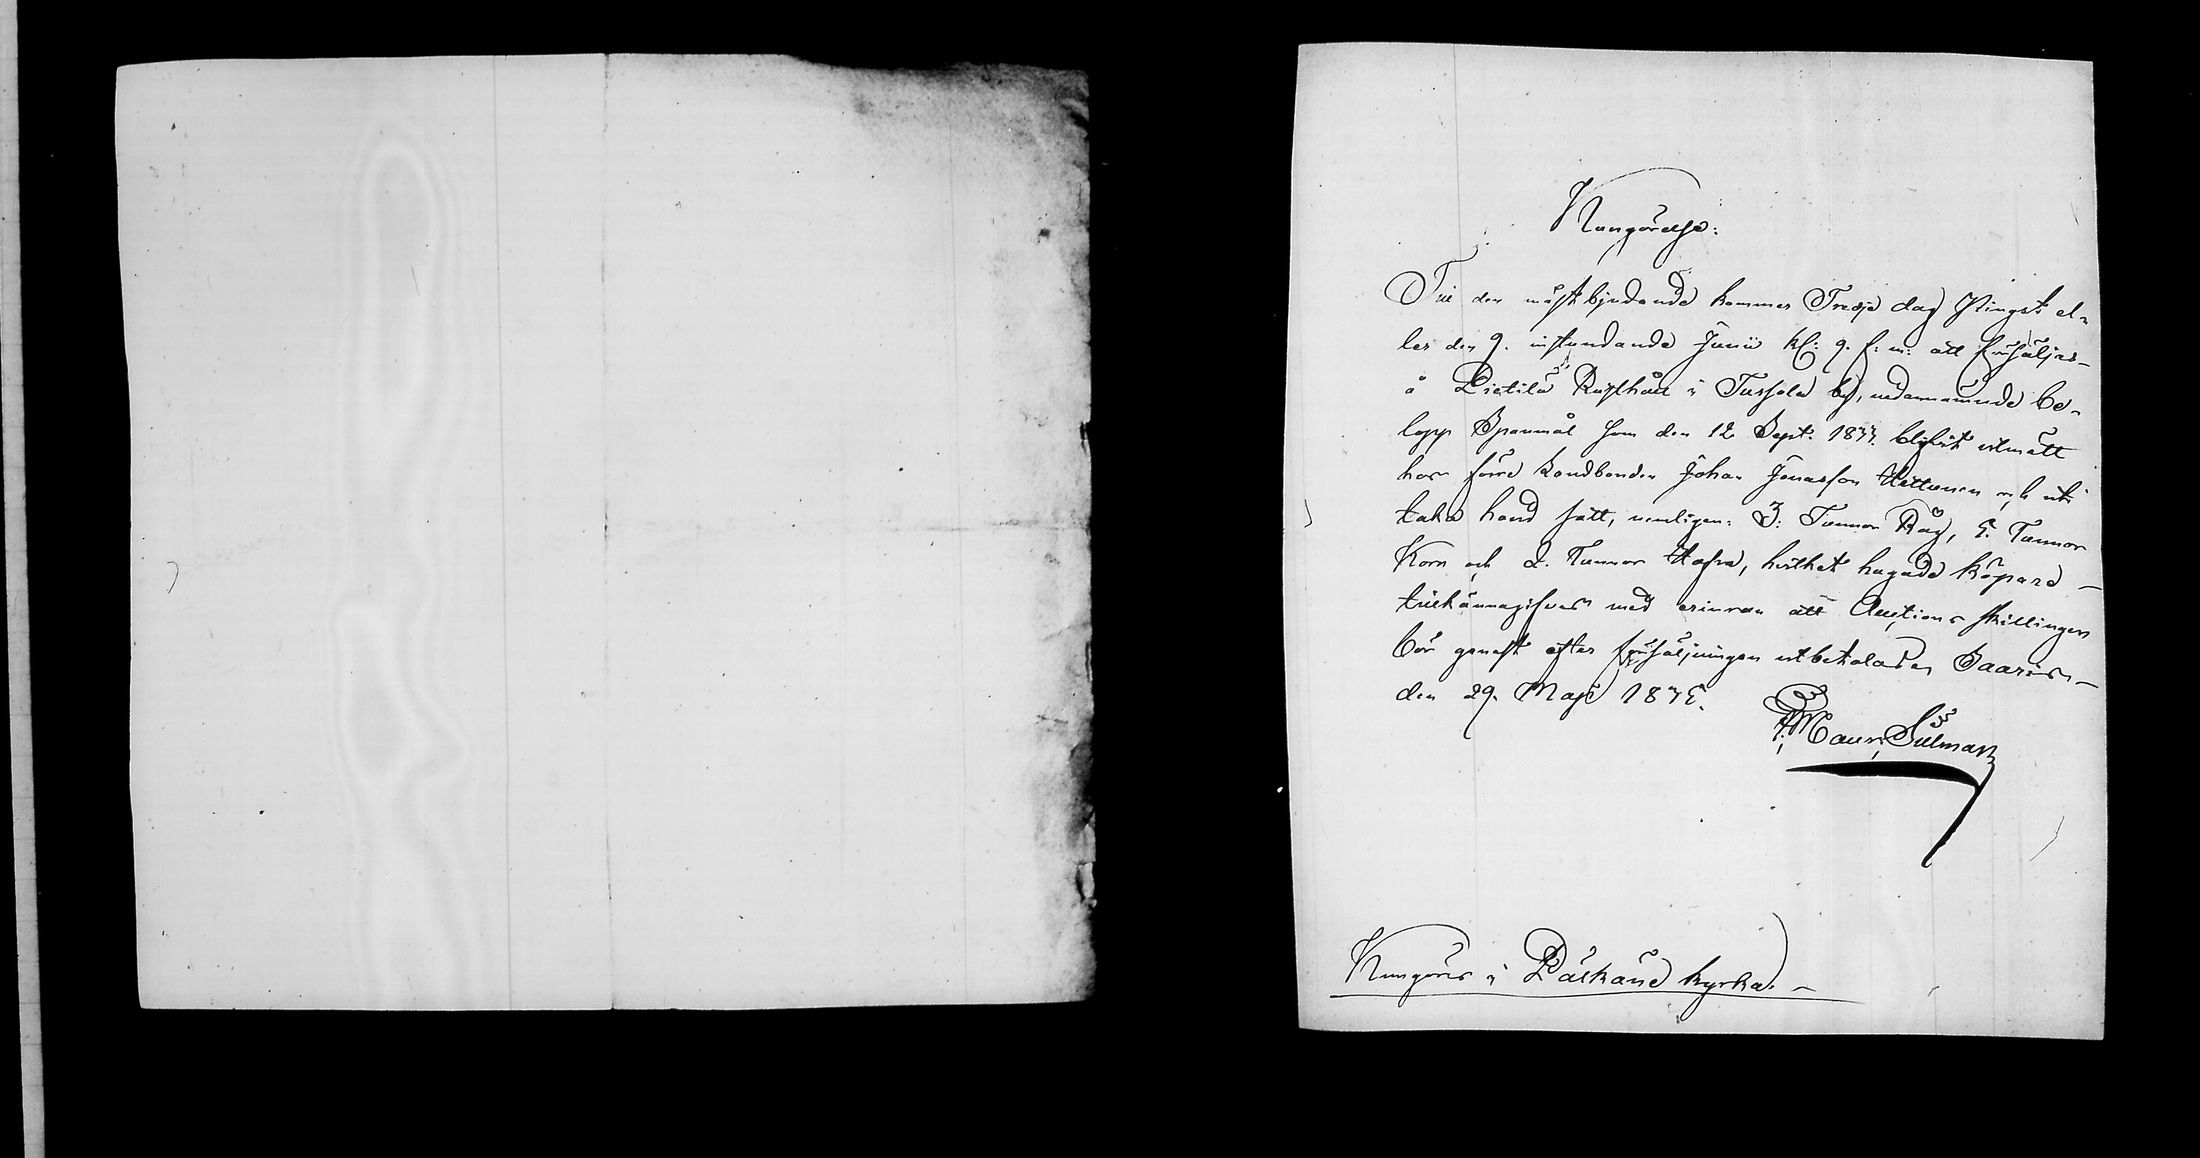 Kungörelse:
Till den mäst bjudande kommer Tredje dag Pingst el-
ler den 9. instundande Junii kl: 9. f: m: att försäljas
å Pietilä Rusthåll i Tursola by, nedannämnde be-
lopp Spanmål som den 12 Sept. 1837. blifvit utmätt
hos förre Landbonden Johan Jonasson Uttunen och uti
taka hand satt, nemligen: 3: Tunnor Råg, 5. Tunnor
Korn och 2. Tunnor Hafra, hvilket hugade köpare
tillkännagifves med erinran att Auctions skillingen
bör genast efter försäljningen utbetalas en Saaris
den 29. Maji 1838.
Maur. Silman
Kungöres i Pälkäne kyrka.